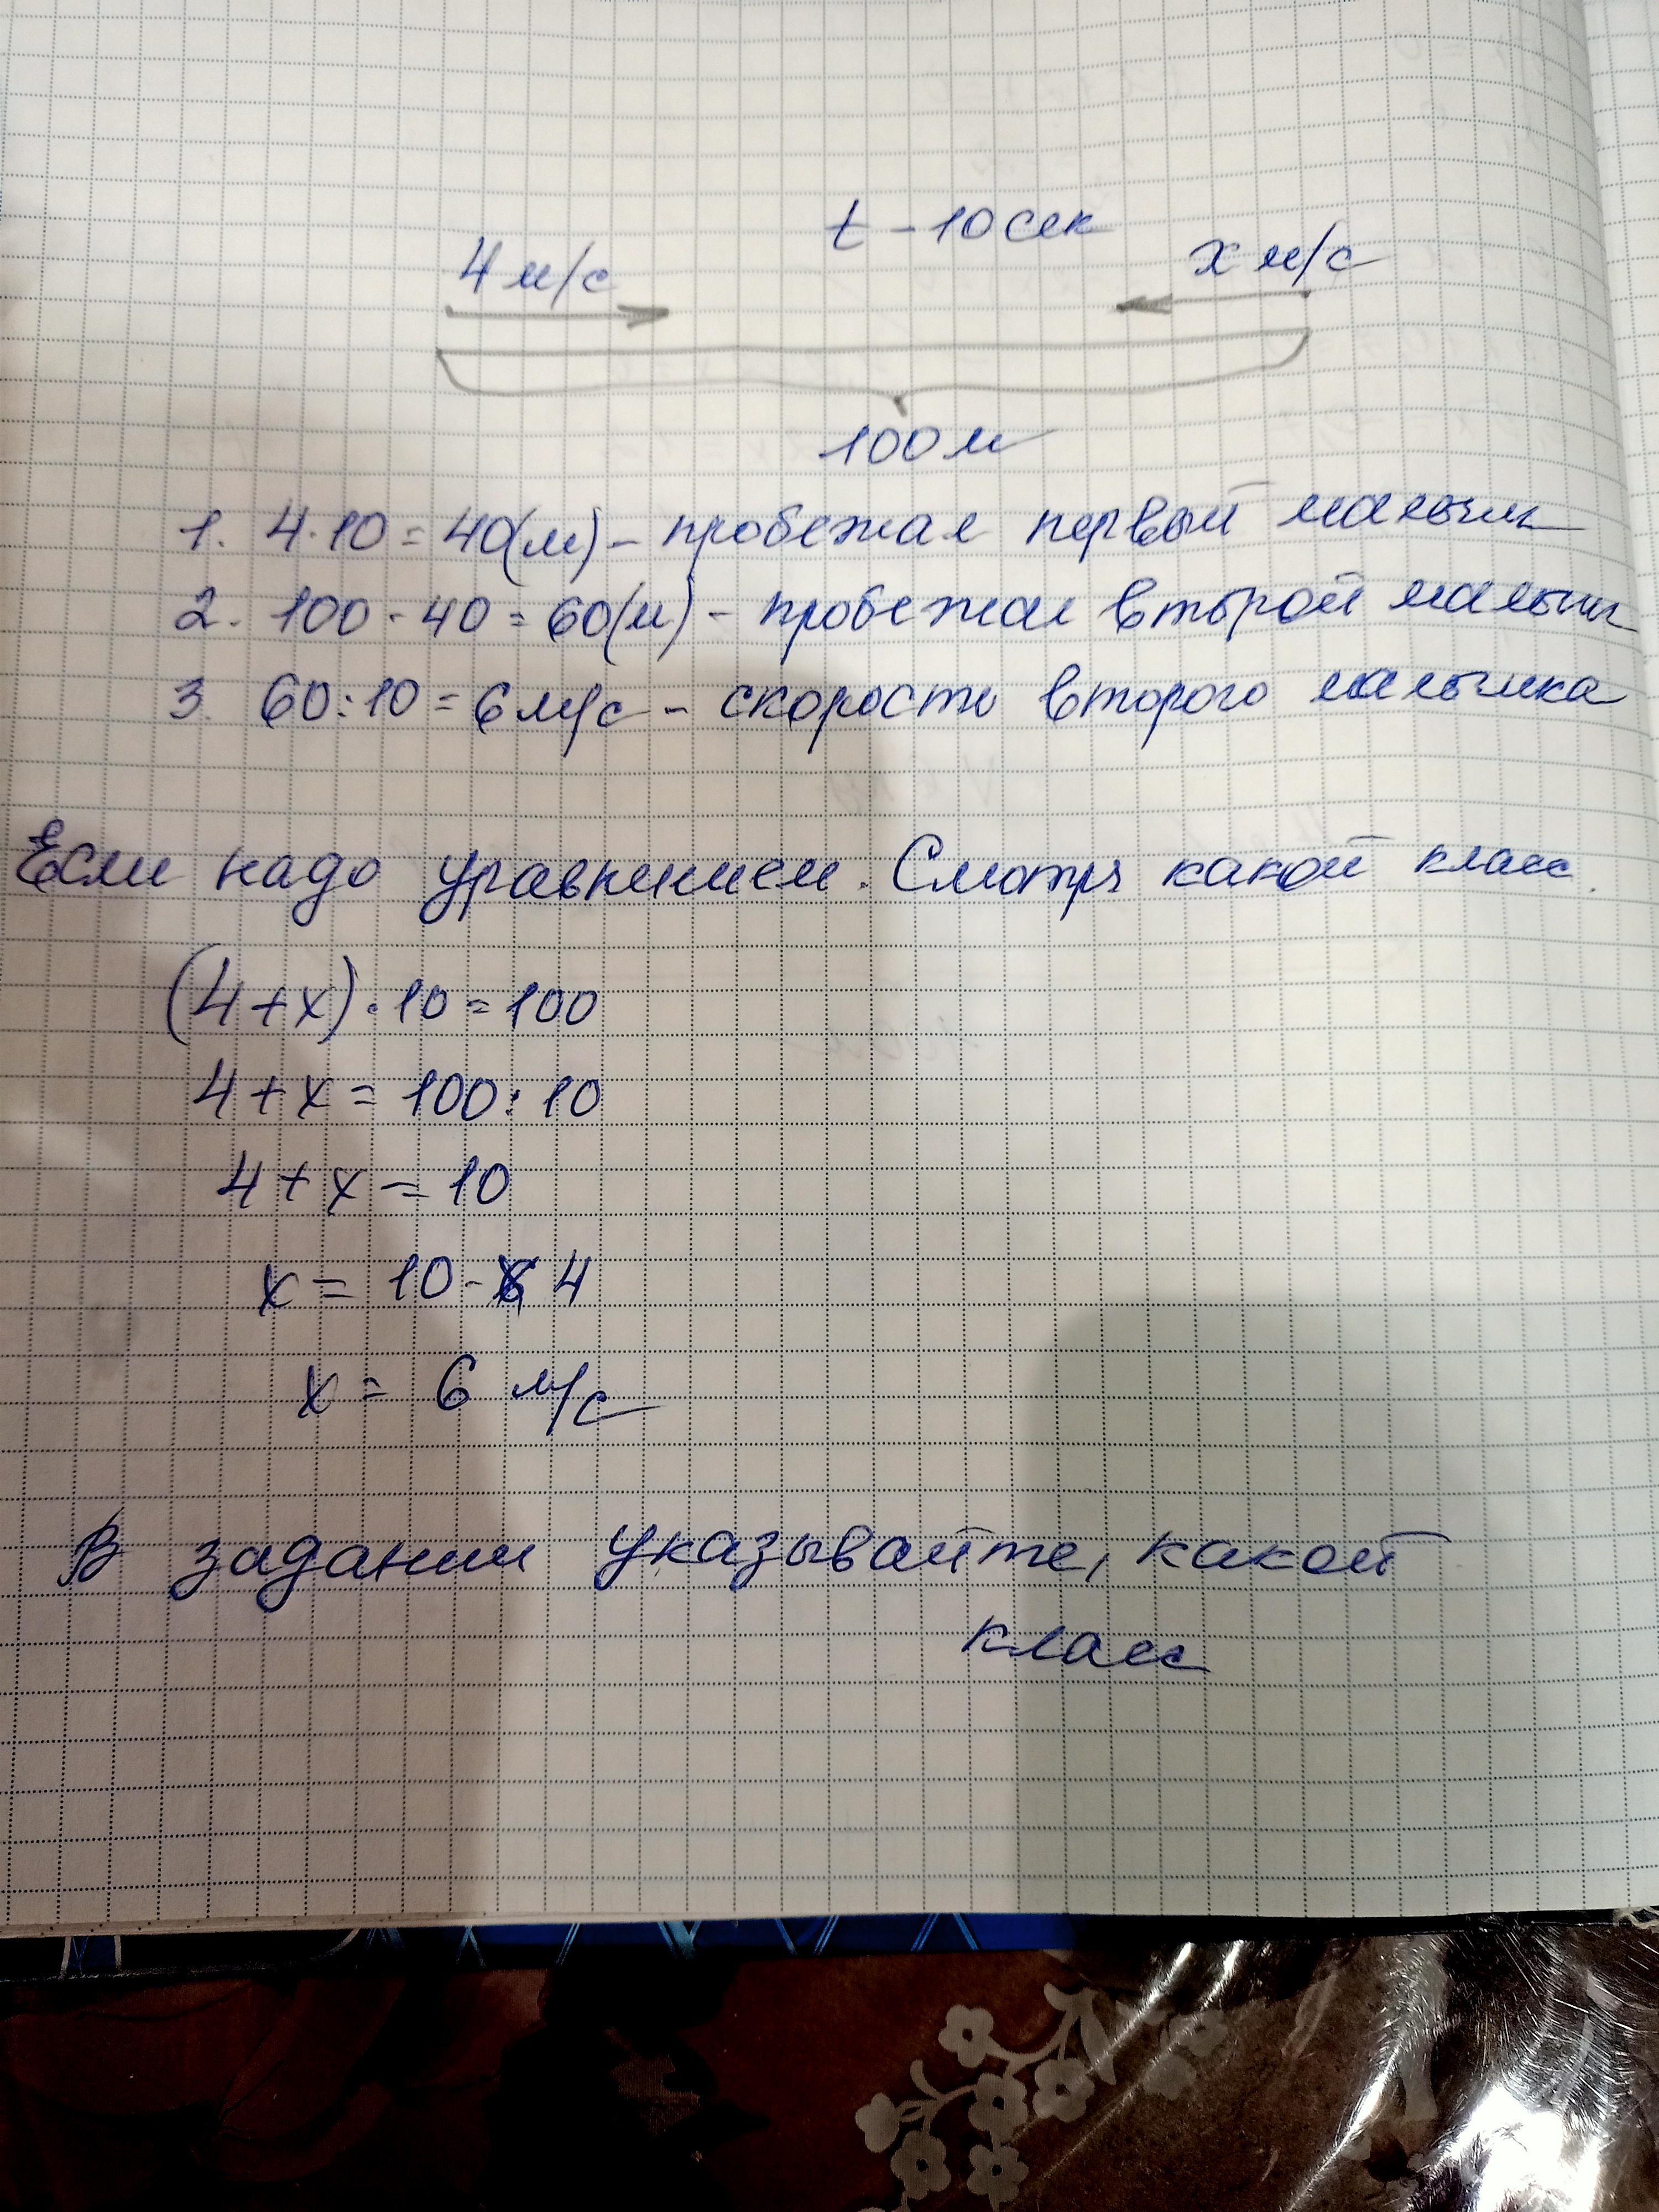 t - 10 сек
4 м/с
x м/с
100 м
1. 4·10=40(м) - пробежал первый мальчик
2. 100-40=60(м) - пробежал второй мальчик
3. 60:10=6 м/с - скорость второго мальчика
Если надо уравнением. Смотря какой класс.
(4+x)·10=100
4+x=100:10
4+x=10
x=10-4
x=6 м/с
В задании указывайте, какой
класс